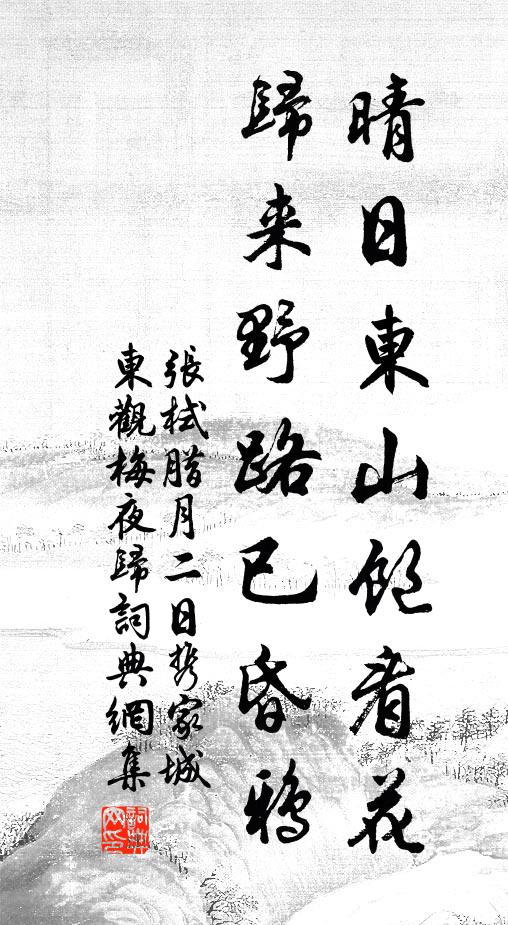 晴日東山飽看花
歸来野路已昏鴉
張栻腊月二日携家城
東觀梅夜歸詞典網集